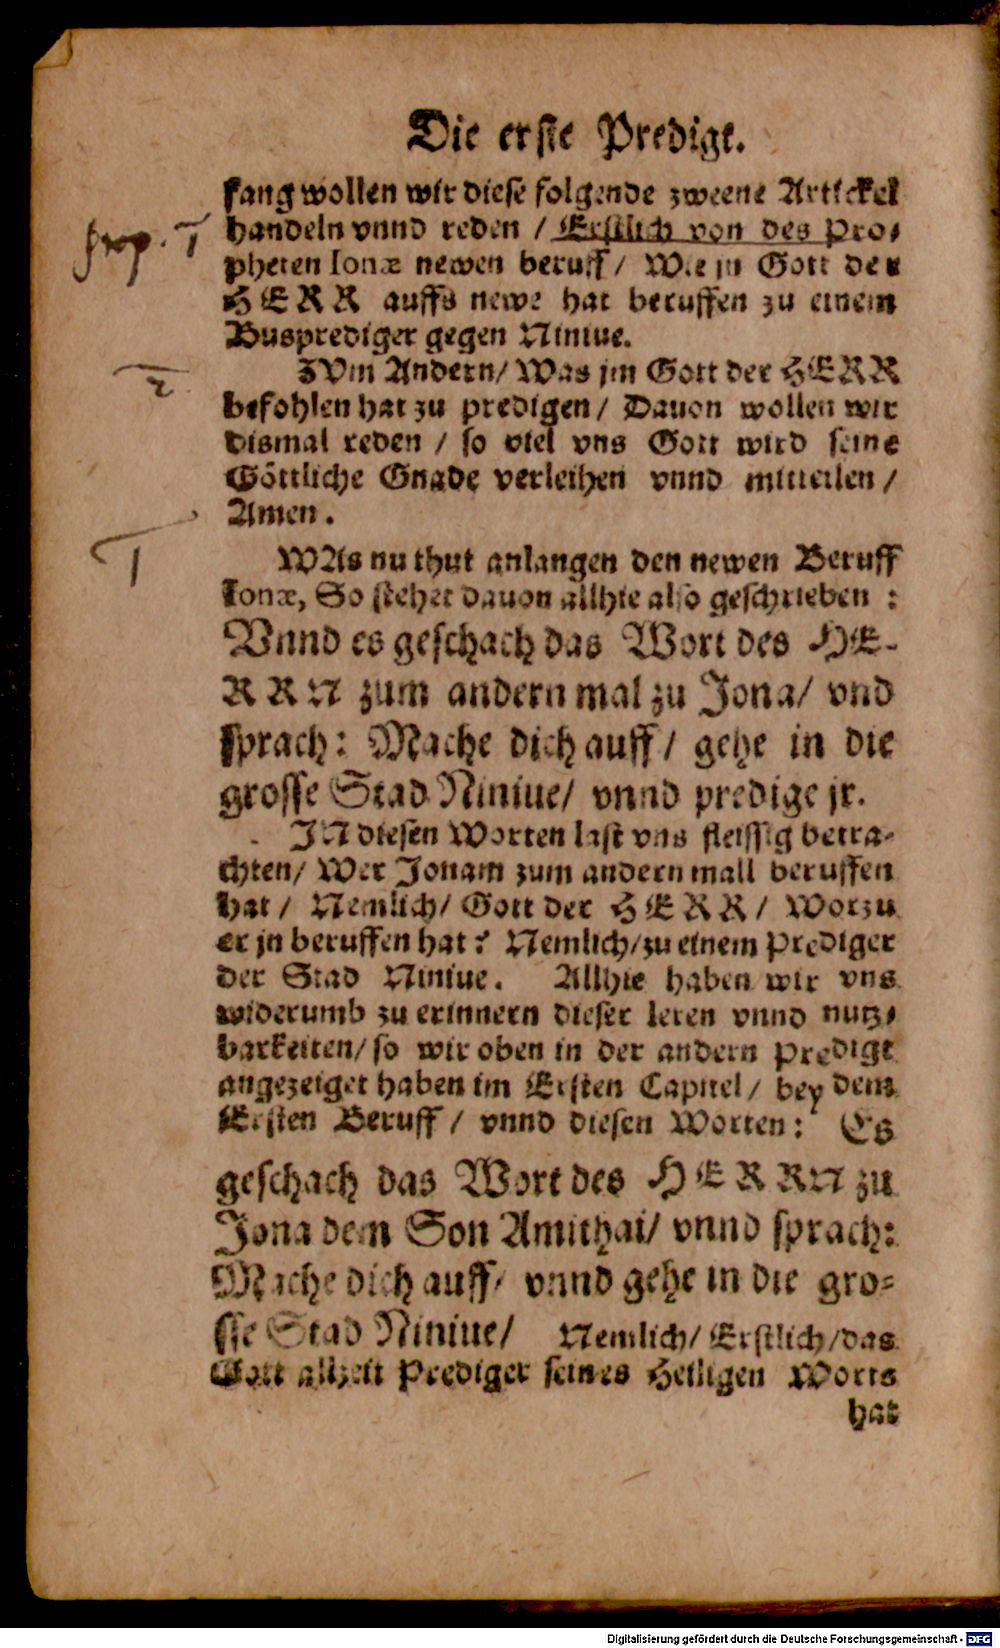 Die erste Predigt.
fang wollen wir diese folgende zweene Artickel
prop. 1
handeln vnnd reden / Erstlich von des Pro-
pheten Ionæ newen beruff / Wie jn Gott der
HERR auffs newe hat beruffen zu einem
Busprediger gegen Niniue.
2
ZVm Andern / Was jm Gott der HERR
befohlen hat zu predigen / Dauon wollen wir
dismal reden / so viel vns Gott wird seine
Göttliche Gnade verleihen vnnd mitteilen /
Amen.
1
WAs nu thut anlangen den newen Beruff
Ionæ, So stehet dauon allhie also geschrieben :
Vnnd es geschach das Wort des HE-
RRN zum andern mal zu Jona / vnd
sprach: Mache dich auff / gehe in die
grosse Stad Niniue / vnnd predige jr.
JN diesen Worten last vns fleissig betra-
chten / Wer Jonam zum andern mall beruffen
hat / Nemlich / Gott der HERR / Worzu
er jn beruffen hat? Nemlich / zu einem Prediger
der Stad Niniue. Allhie haben wir vns
widerumb zu erinnern dieser leren vnnd nutz-
barkeiten / so wir oben in der andern Predigt
angezeiget haben im Ersten Capitel / bey dem
Ersten Beruff / vnnd diesen Worten: Es
geschach das Wort des HERRN zu
Jona dem Son Amithai / vnnd sprach:
Mache dich auff / vnnd gehe in die gro-
sse Stad Niniue / Nemlich / Erstlich / das
Gott allzeit Prediger seines Heiligen Worts
hat
Digitalisierung gefördert durch die Deutsche Forschungsgemeinschaft - DFG